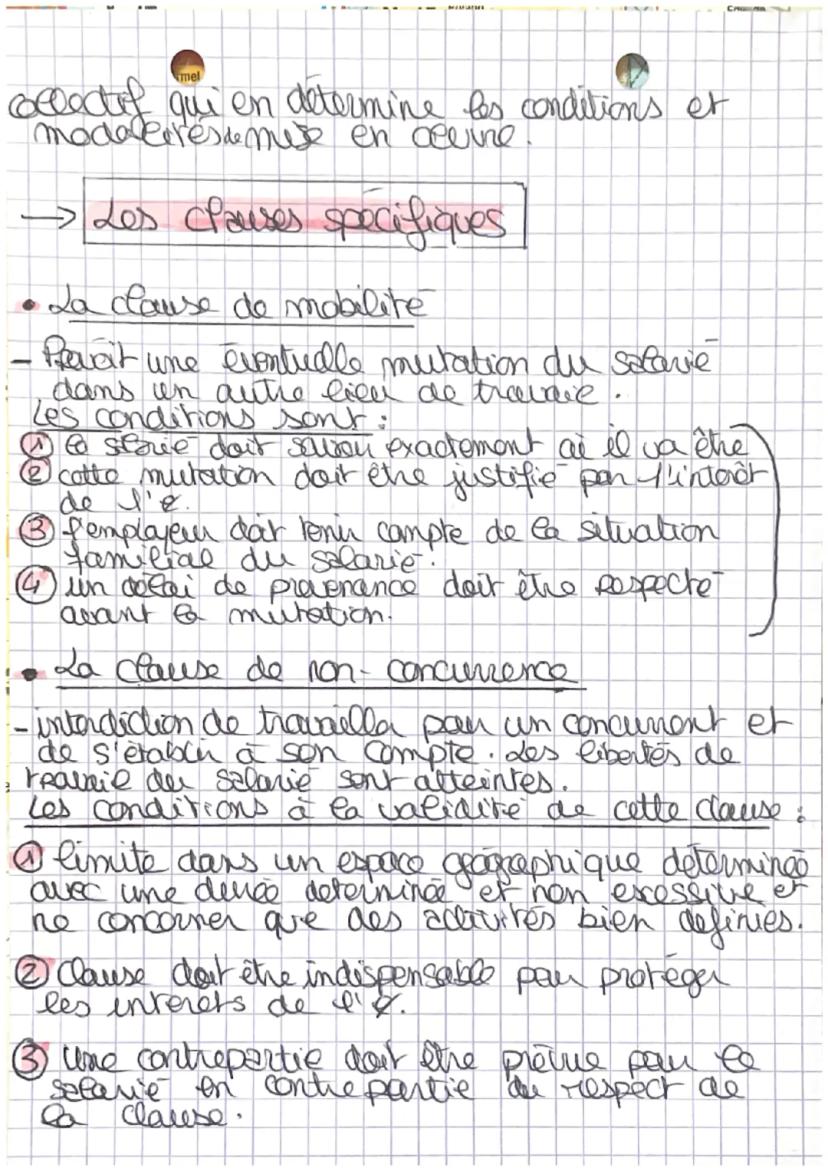 collectif qui en détermine les conditions et
modalités de mise en œuvre.
→ Les clauses spécifiques
• La clause de mobilité
- Prévoit une éventuelle mutation du salarié
dans un autre lieu de travail.
Les conditions sont :
① le salarié doit savoir exactement où il va être
② cette mutation doit être justifié par l'intérêt
de l'e.
③ l'employeur doit tenir compte de la situation
familiale du salarié.
④ un délai de prévenance doit être respecté
avant la mutation.
• La clause de non-concurrence
- interdiction de travailler pour un concurrent et
de s'établir à son compte. Les libertés de
travail du salarié sont atteintes.
Les conditions à la validité de cette clause :
① limite dans un espace géographique déterminée
avec une durée déterminée et non excessive et
ne concerner que des activités bien définies.
② Clause doit être indispensable pour protéger
les intérêts de l'e.
③ Une contrepartie doit être prévue pour le
salarié en contre partie du respect de
la clause.